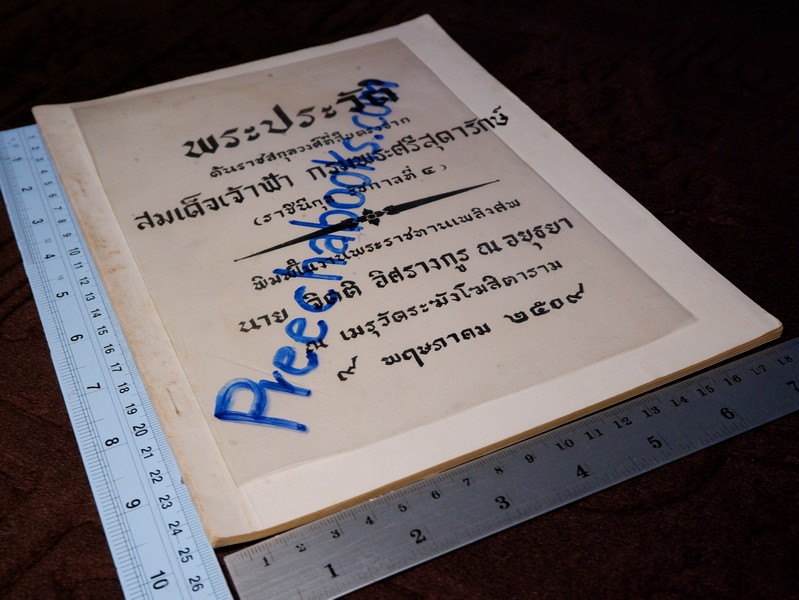 พระประวัติ
ต้นราชสกุลวงศ์ที่สืบตระกูล
สมเด็จเจ้าฟ้า กรมพระศรีสุดารักษ์
(ราชินีกุล รัชกาลที่ ๔)
พิมพ์ในงานพระราชทานเพลิงศพ
นาย จิตติ อิศรางกูร ณ อยุธยา
ณ เมรุวัดระฆังโฆสิตาราม
๙ พฤษภาคม ๒๕๐๙
Preechabooks.com
1 2 3 4 5 6 7 8 9 10 11 12 13 14 15 16 17 18
1 2 3 4 5 6 7
2 3 4 5 6 7 8 9 10
10 11 12 13 14 15 16 17 18 19 20 21 22 23 24 25 26